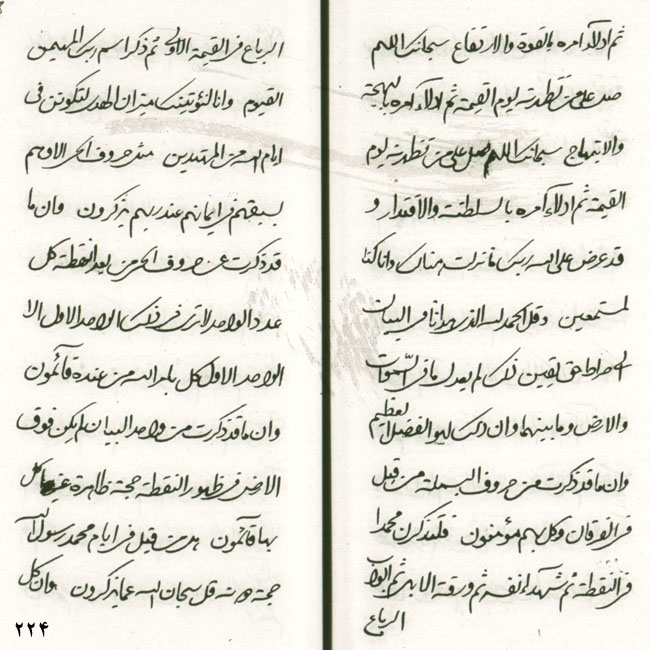 ثم ادلاء امره بالقوة والارتفاع سبحانك اللهم
صل على من تظهرنه يوم القيمة ثم ادلاء امره بالبهجة
والابتهاج سبحانك اللهم صل على من تظهرنه يوم
القيمة ثم ادلاء امره بالسلطنة والاقتدار و
قد عرض على الله ربك ما نزلت هنالك وانا كنا
لمستمعين وقل الحمد لله الذي هدانا في البيان
الى صراط حق يقين ذلك لم يعدله ما في السموات
والارض وما بينهما وان ذلك لهو الفضل العظيم
وان ما قد ذكرت من حروف البسملة من قبل
في الفرقان وكل بهم مؤمنون فلتذكرن محمدا
في النقطة ثم شهداء نفسه ثم ورقة الابهى ثم ابواب
الرباع
الرباع في القيمة الاولى ثم ذكر اسم ربك المهيمن
القيوم وانا لنؤتينك ميزان الهدى لتكونن في
ايام الله من المهتدين مثل حروف الحي الاوهم
بسبقهم في ايمانهم عند ربهم يذكرون وان ما
قد ذكرت عن حروف الحي من بعد النقطة كل
عدد الواحد لا ترى في ذلك الواحد الاول الا
الواحد الاول كل بامر الله من عنده قائمون
وان ما قد ذكرت من واحد البيان لم يكن فوق
الارض في ظهور النقطة حجة ظاهرة غير كل
بها قائمون من قبل في ايام محمد رسول الله
حجة قل سبحان الله عما يذكرون وان كل
٢٢۴